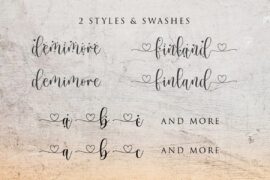 2 STYLES & SWASHES
demimore finland
demimore finland
a b c AND MORE
a b c AND MORE